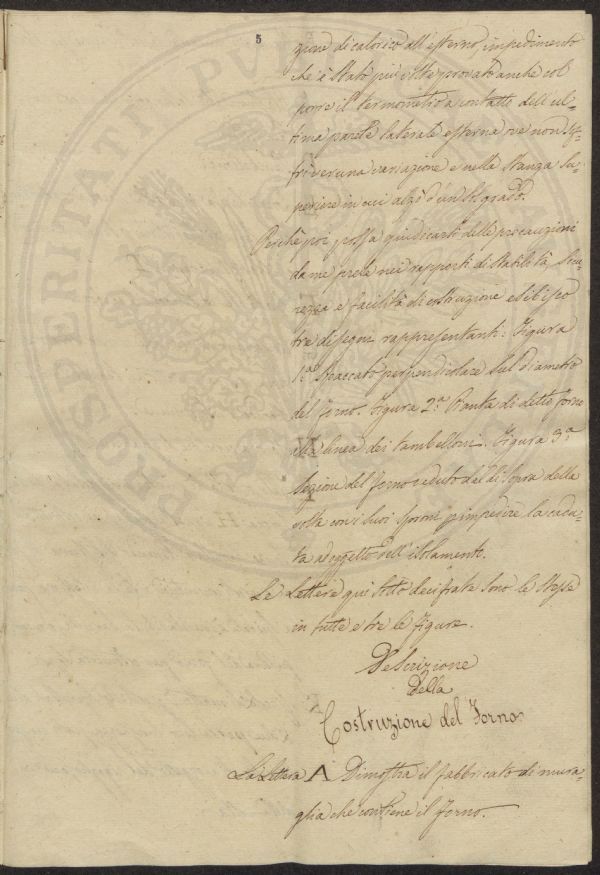 5
zione di calorico all'esterno, impedimento
che è stato più volte provato anche col
porre il termometro a contatto dell'ul-
tima parete laterale esterna ove non sof-
frì veruna variazione e nella stanza su-
periore in cui alzò d'un sol grado.
Perchè poi possa giudicarsi delle precauzioni
da me prese nei rapporti di stabilità secu-
rezza e facilità di costruzione esibisco
tre disegni rappresentanti: Figura
1.a Spaccato perpendicolare sul diametro
del forno. Figura 2.a Pianta di detto forno
alla linea dei tambelloni. Figura 3.a
Sezione del forno veduto dal di sopra della
volta con i suoi speroni p impedire la cadu-
ta ad oggetto dell'isolamento.
Le Lettere qui sotto decifrate sono le stesse
in tutte e tre le figure.
Descrizione
della
Costruzione del Forno
La Lettera A Dimostra il fabbricato di mura-
glia che contiene il forno.
PROSPERITATI PUBL